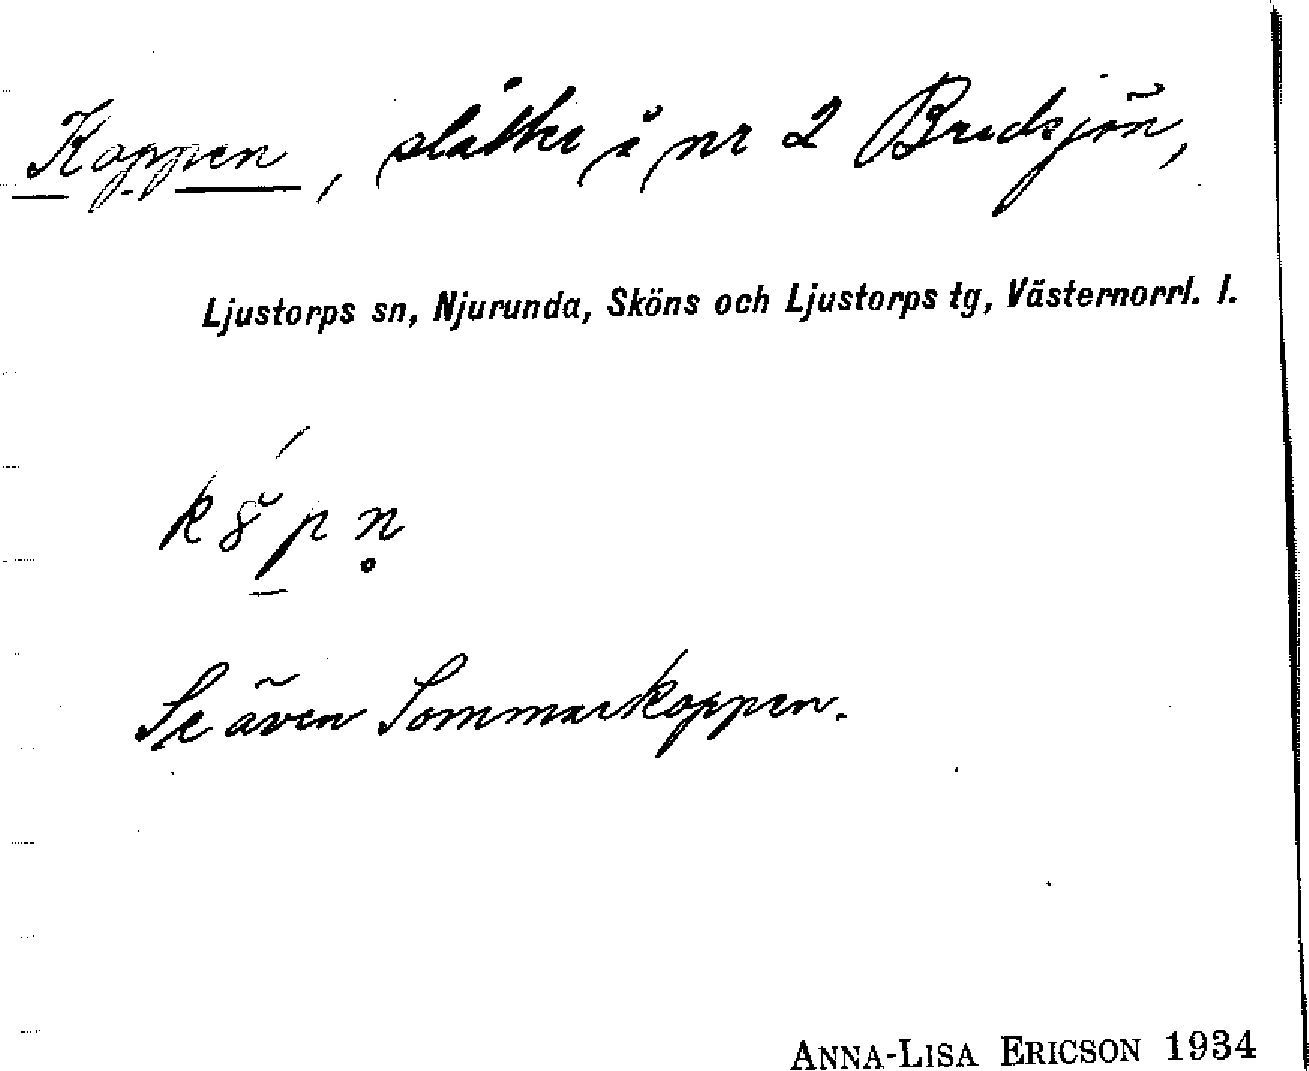 Koppen, slåtter i nr 2 Bredsjön,
Ljustorps sn, Njurunda, Sköns och Ljustorps tg, Västernorrl. l.
Se även Sommarkoppen.
ANNA-LISA ERICSON 1934